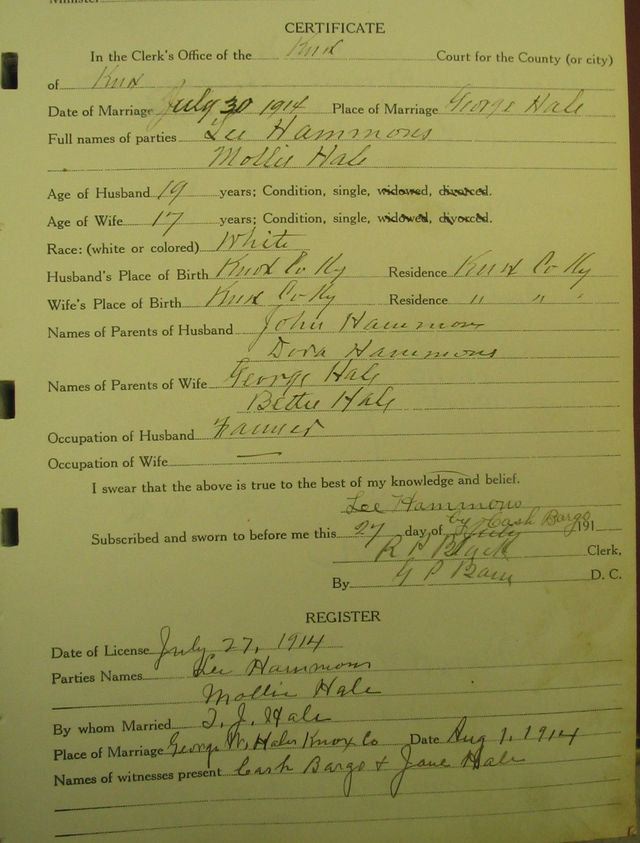 Minister
CERTIFICATE
In the Clerk's Office of the Knox Court for the County (or city)
of Knox
Date of Marriage July 30 1914 Place of Marriage George Hale
Full names of parties Lee Hammons
Mollie Hale
Age of Husband 19 years; Condition, single, widowed, divorced.
Age of Wife 17 years; Condition, single, widowed, divorced.
Race: (white or colored) White
Husband's Place of Birth Knox Co Ky Residence Knox Co Ky
Wife's Place of Birth Knox Co Ky Residence " " "
Names of Parents of Husband John Hammons
Dora Hammons
Names of Parents of Wife George Hale
Bettie Hale
Occupation of Husband Farmer
Occupation of Wife —
I swear that the above is true to the best of my knowledge and belief.
Lee Hammons
by Cash Bargo
Subscribed and sworn to before me this 27 day of July 191
R P Black Clerk.
By G P Bain D. C.
REGISTER
Date of License July 27, 1914
Parties Names Lee Hammons
Mollie Hale
By whom Married T. J. Hale
Place of Marriage George W. Hales Knox Co Date Aug 1, 1914
Names of witnesses present Cash Bargo & Jane Hale